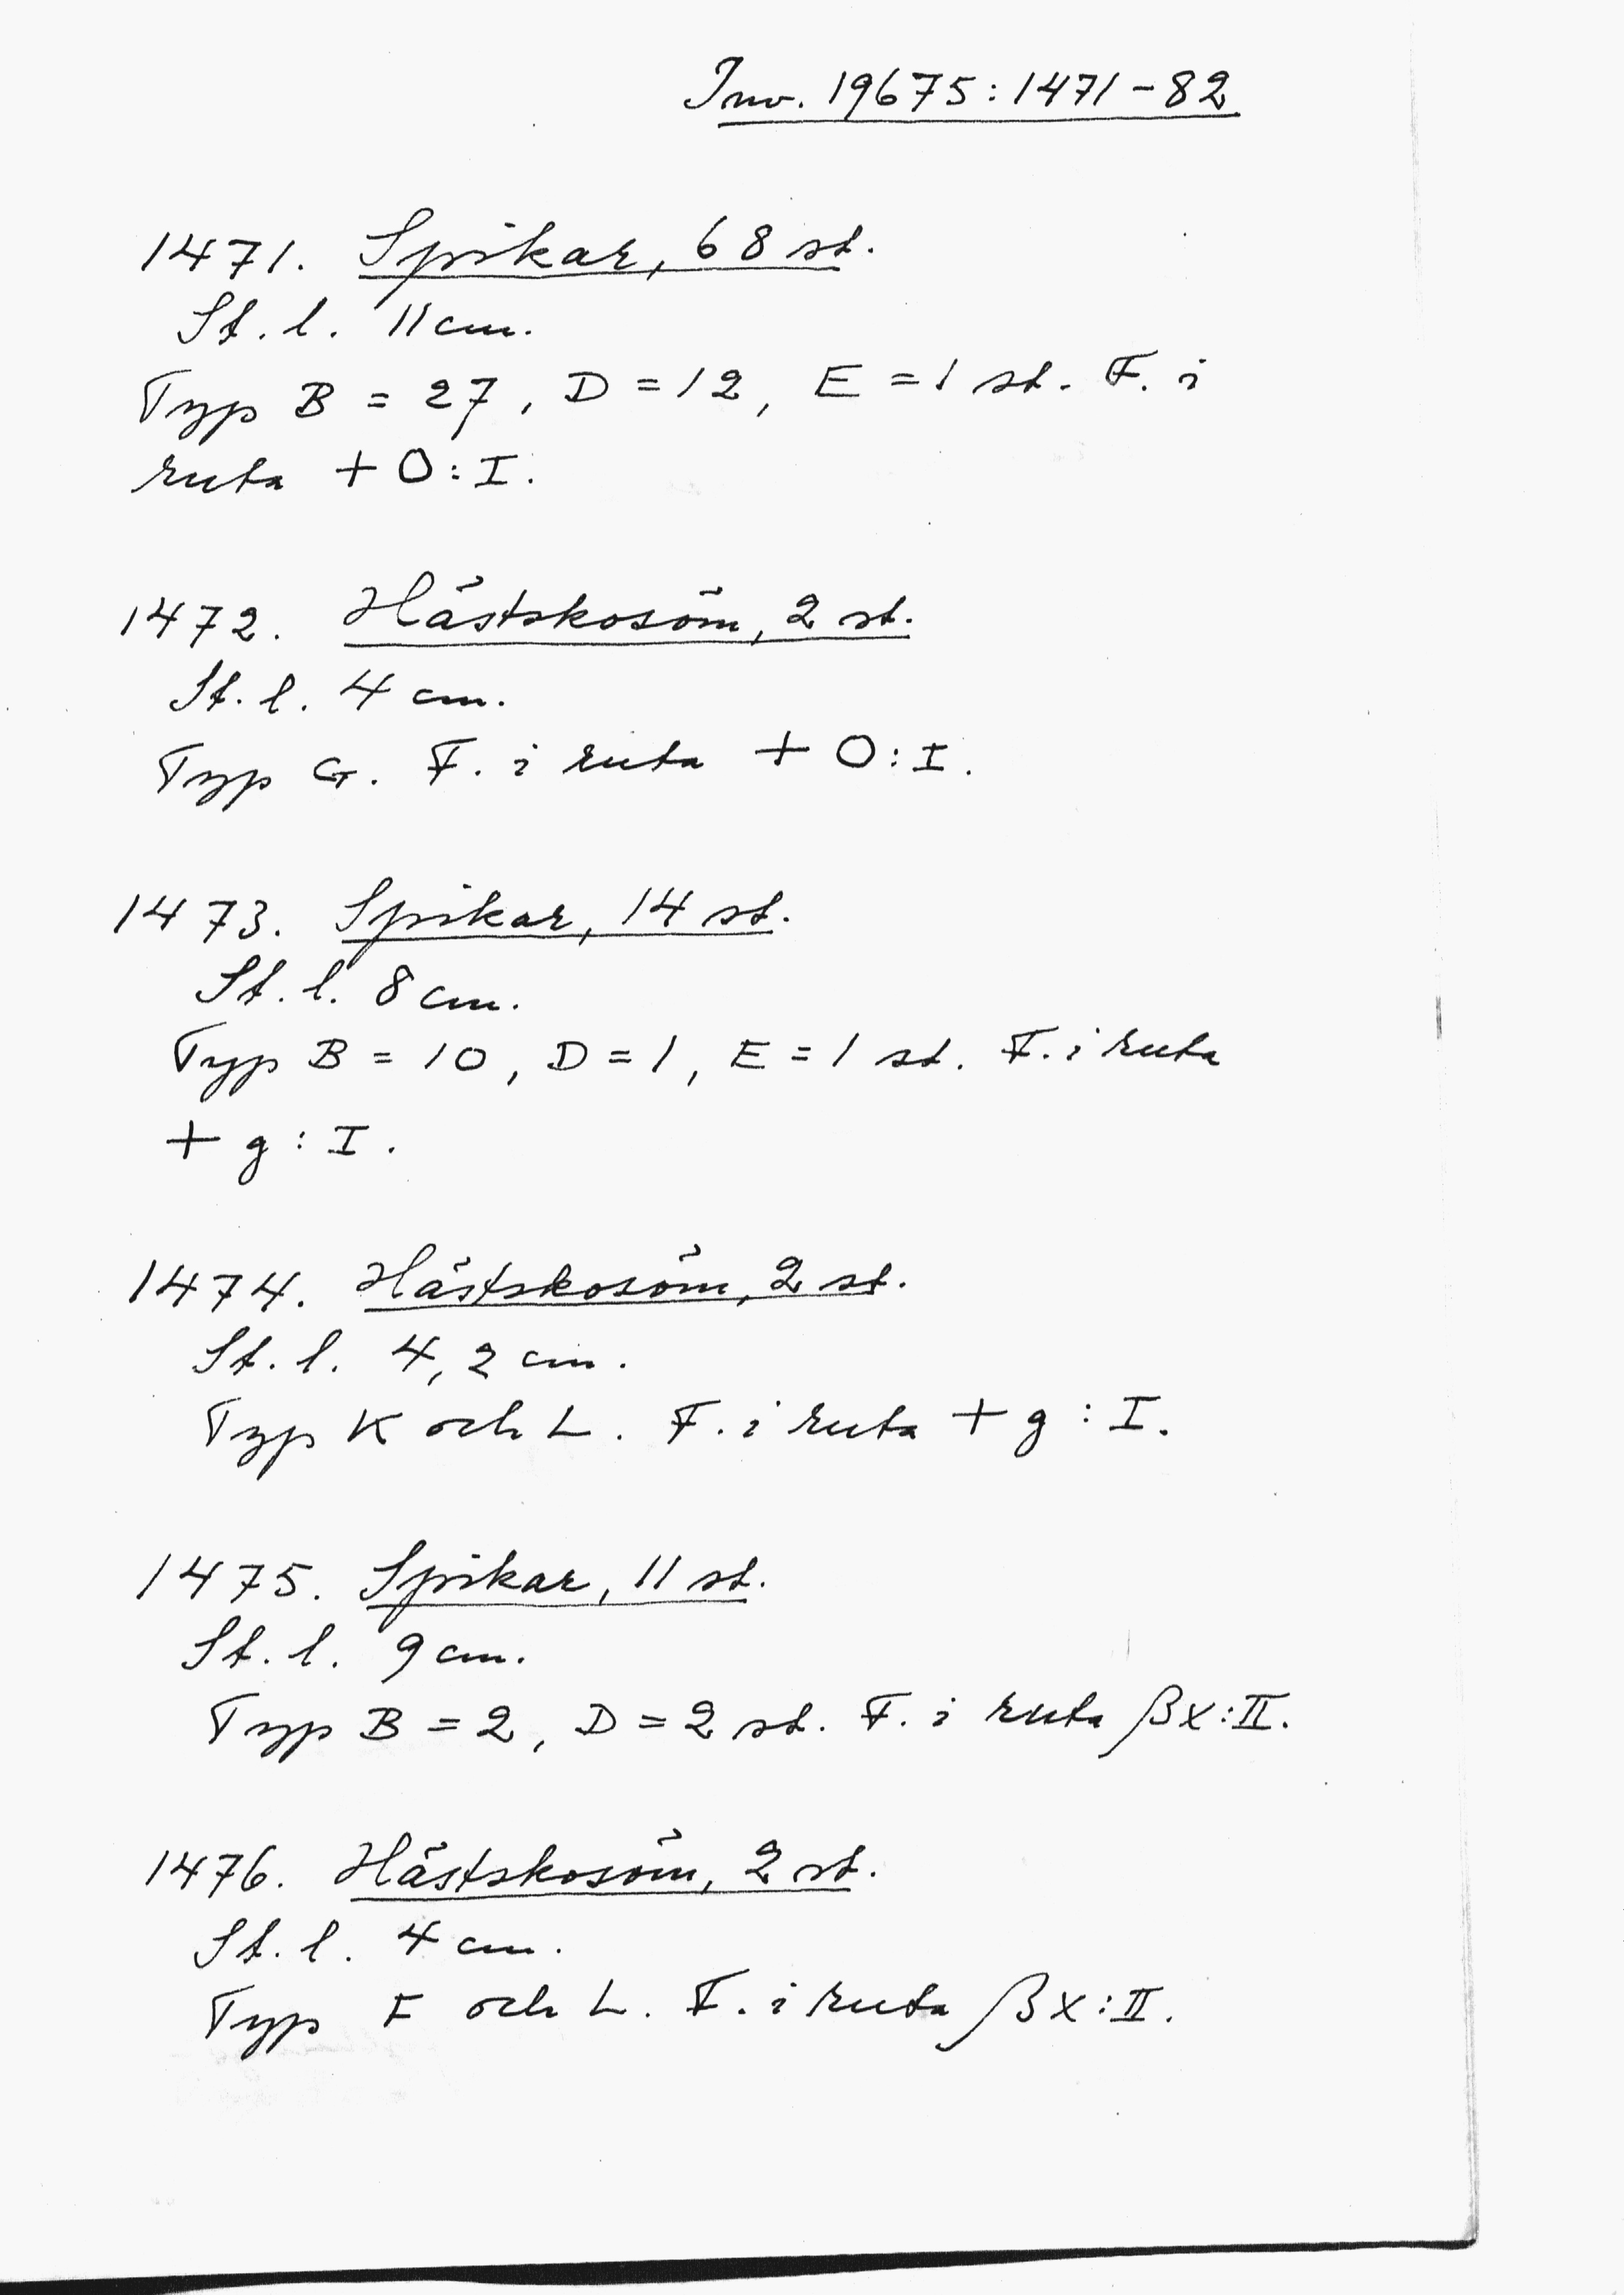 Inv. 19675:1471-82
1471. Spikar, 68 st.
St. l. 11 cm.
Typ B = 27, D = 12, E = 1 st. F. i
ruta + O:I.
1472. Hästskosöm, 2 st.
St. l. 4 cm.
Typ G. F. i ruta + O:I.
1473. Spikar, 14 st.
St. l. 8 cm.
Typ B = 10, D = 1, E = 1 st. F. i ruta
+ g:I.
1474. Hästskosöm, 2 st.
St. l. 4,2 cm.
Typ K och L. F. i ruta + g:I.
1475. Spikar, 11 st.
St. l. 9 cm.
Typ B = 2, D = 2 st. F. i ruta βx:II.
1476. Hästskosöm, 2 st.
St. l. 4 cm.
Typ F och L. F. i ruta βx:II.